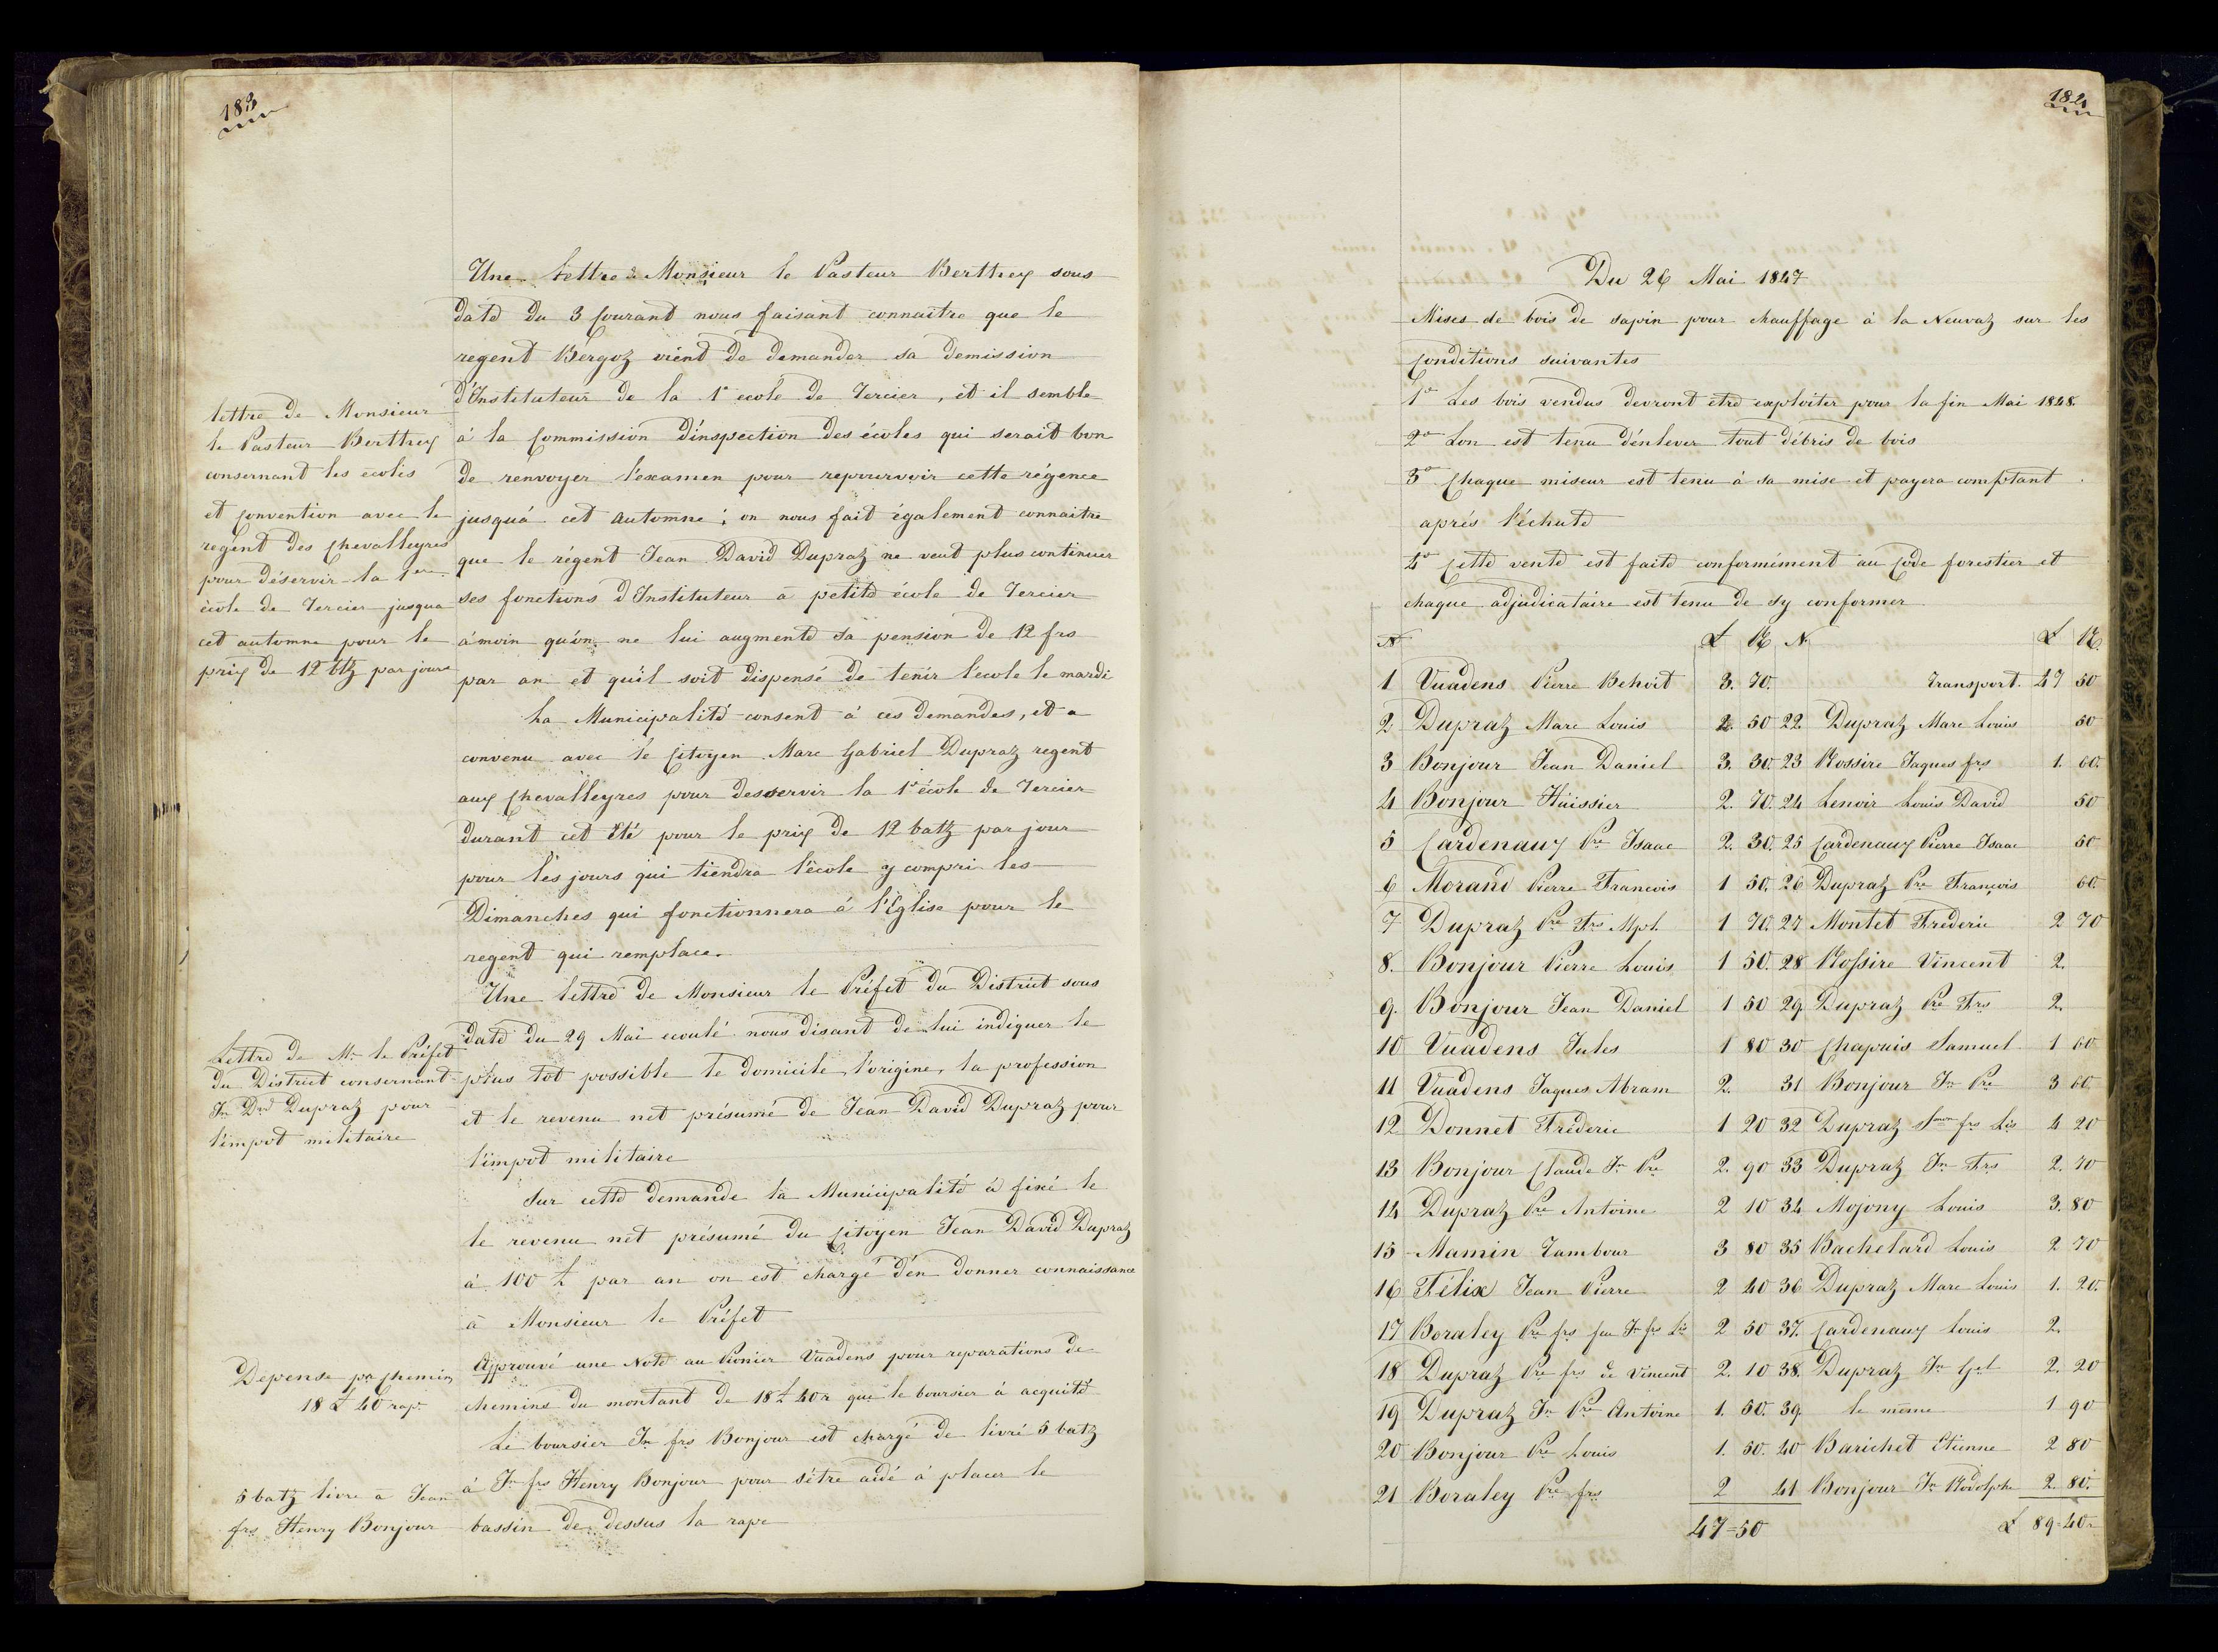 183
Une lettre de Monsieur le Pasteur Berthey sous
date du 3 Courant nous faisant connaitre que le
regent Bergoz vient de demander sa demission
d'Instituteur de la 1e ecole de Tercier, et il semble
á la Commission d'inspection des écoles qui serait bon
de renvoyer l'éxamen pour repourvoir cette régence
jusquá cet Automne ; on nous fait également connaitre
que le régent Jean David Dupraz ne veut plus continuer
ses fonctions d'Instituteur a petite école de Tercier
ámoin quón ne lui augmente sa pension de 12 frs
par an et quíl soit dispensé de tenir l'école le mardi
La Municipalité consent á ces demandes, et a
convenu avec le Citoyen Marc Gabriel Dupraz regent
aux Chevalleyres pour desservir la 1e école de Tercier
durant cet Été pour le prix de 12 batz par jour
pour les jours qui tiendra l'école y compri les
Dimanches qui fonctionnera á l'Eglise pour le
regent qui remplace.
Une lettre de Monsieur le Préfet du District sous
date du 29 Mai ecoulé nous disant de lui indiquer le
plus tot possible le domicile, l'origine, la profession
et le revenu net présumé de Jean David Dupraz pour
l'impot militaire
Sur cette demande la Municipalité à fixé le
le revenu net présumé du Citoyen Jean David Dupraz
á 100 £ par an on est chargé dén donner connaissance
á Monsieur le Préfet
Approuvé une Note au Pionier Vuadens pour reparations de
chemins du montant de 18 £ 40 r que le boursier à acquité
Le boursier Jn frs Bonjour est chargé de livré 5 batz
á Jn frs Henry Bonjour pour s'étre aidé á placer le
bassin de dessus la rape
lettre de Monsieur
le Pasteur Berthey
consernant les ecoles
et Convention avec le
regént des Chevalleyres
pour déservir la 1ere
école de Tercier jusqua
cet automne pour le
prix de 12 btz par jours
Lettre de Mr le Préfet
du District consernant
Jn Dvd Dupraz pour
l'impot militaire
Depense pr Chemin
18 £ 40 rap.
5 batz livre á Jean
frs Henry Bonjour
184
Du 26 Mai 1847
Mises de bois de sapin pour chauffage à la Neuvaz sur les
Conditions suivantes
1o Les bois vendus devront etre exploiter pour la fin Mai 1848.
2o Lon est tenu d'énlever tout débris de bois
3o Chaque miseur est tenu à sa mise et payera comptant
aprés l'échute
4o Cette vente est faite conformément au Code forestier et
chaque adjudicataire est tenu de sy conformer
N £ R N £ R
1 Vuadens Pierre Behoit 3. 70. Transport. 47 50
2 Dupraz Marc Louis 2. 50 22 Dupraz Marc Louis 50
3 Bonjour Jean Daniel 3. 30. 23 Rossire Jaques frs 1. 60.
4 Bonjour Húissier 2. 70. 24 Lenoir Louis David 50
5 Cardenaux Pre Isaac 2. 30. 25 Cardenaux Pierre Isaac 50
6 Morand Pierre Francois 1 50. 26 Dupraz Pre François 60.
7 Dupraz Pre Frs Mpl. 1 70. 27 Montet Frederic 2 70
8. Bonjour Pierre Louis 1 50. 28 Rossire Vincent 2.
9. Bonjour Jean Daniel 1 50 29. Dupraz Pre Frs 2.
10 Vuadens Jules 1 80 30 Chapuis Samuel 1 60
11 Vuadens Jaques Abram 2. 31 Bonjour Jn Pre 3 60.
12 Donnet Fréderic 1 20 32 Dupraz frs Ls 4 20
13 Bonjour Claude Jn Pre 2. 90 33 Dupraz Jn Frs 2. 70
14 Dupraz Pre Antoine 2 10 34 Mojony Louis 3. 80
15 Mamin Tambour 3 80 35 Bachelard Louis 2 70
16 Félix Jean Pierre 2 40 36 Dupraz Marc Louis 1. 20.
17 Boraley Pre frs feu Jn frs Ls 2 50 37. Cardenaux Louis 2.
18 Dupraz Pre frs de Vincent 2. 10 38. Dupraz Jn Gel 2. 20
19 Dupraz Jn Pre Antoine 1. 50. 39. le même 1 90
20 Bonjour Pre Louis 1. 50. 40 Barichet Etienne 2 80
21 Boraley Pre frs 2 41 Bonjour Jn Rodolphe 2. 80.
47=50 £ 89=40